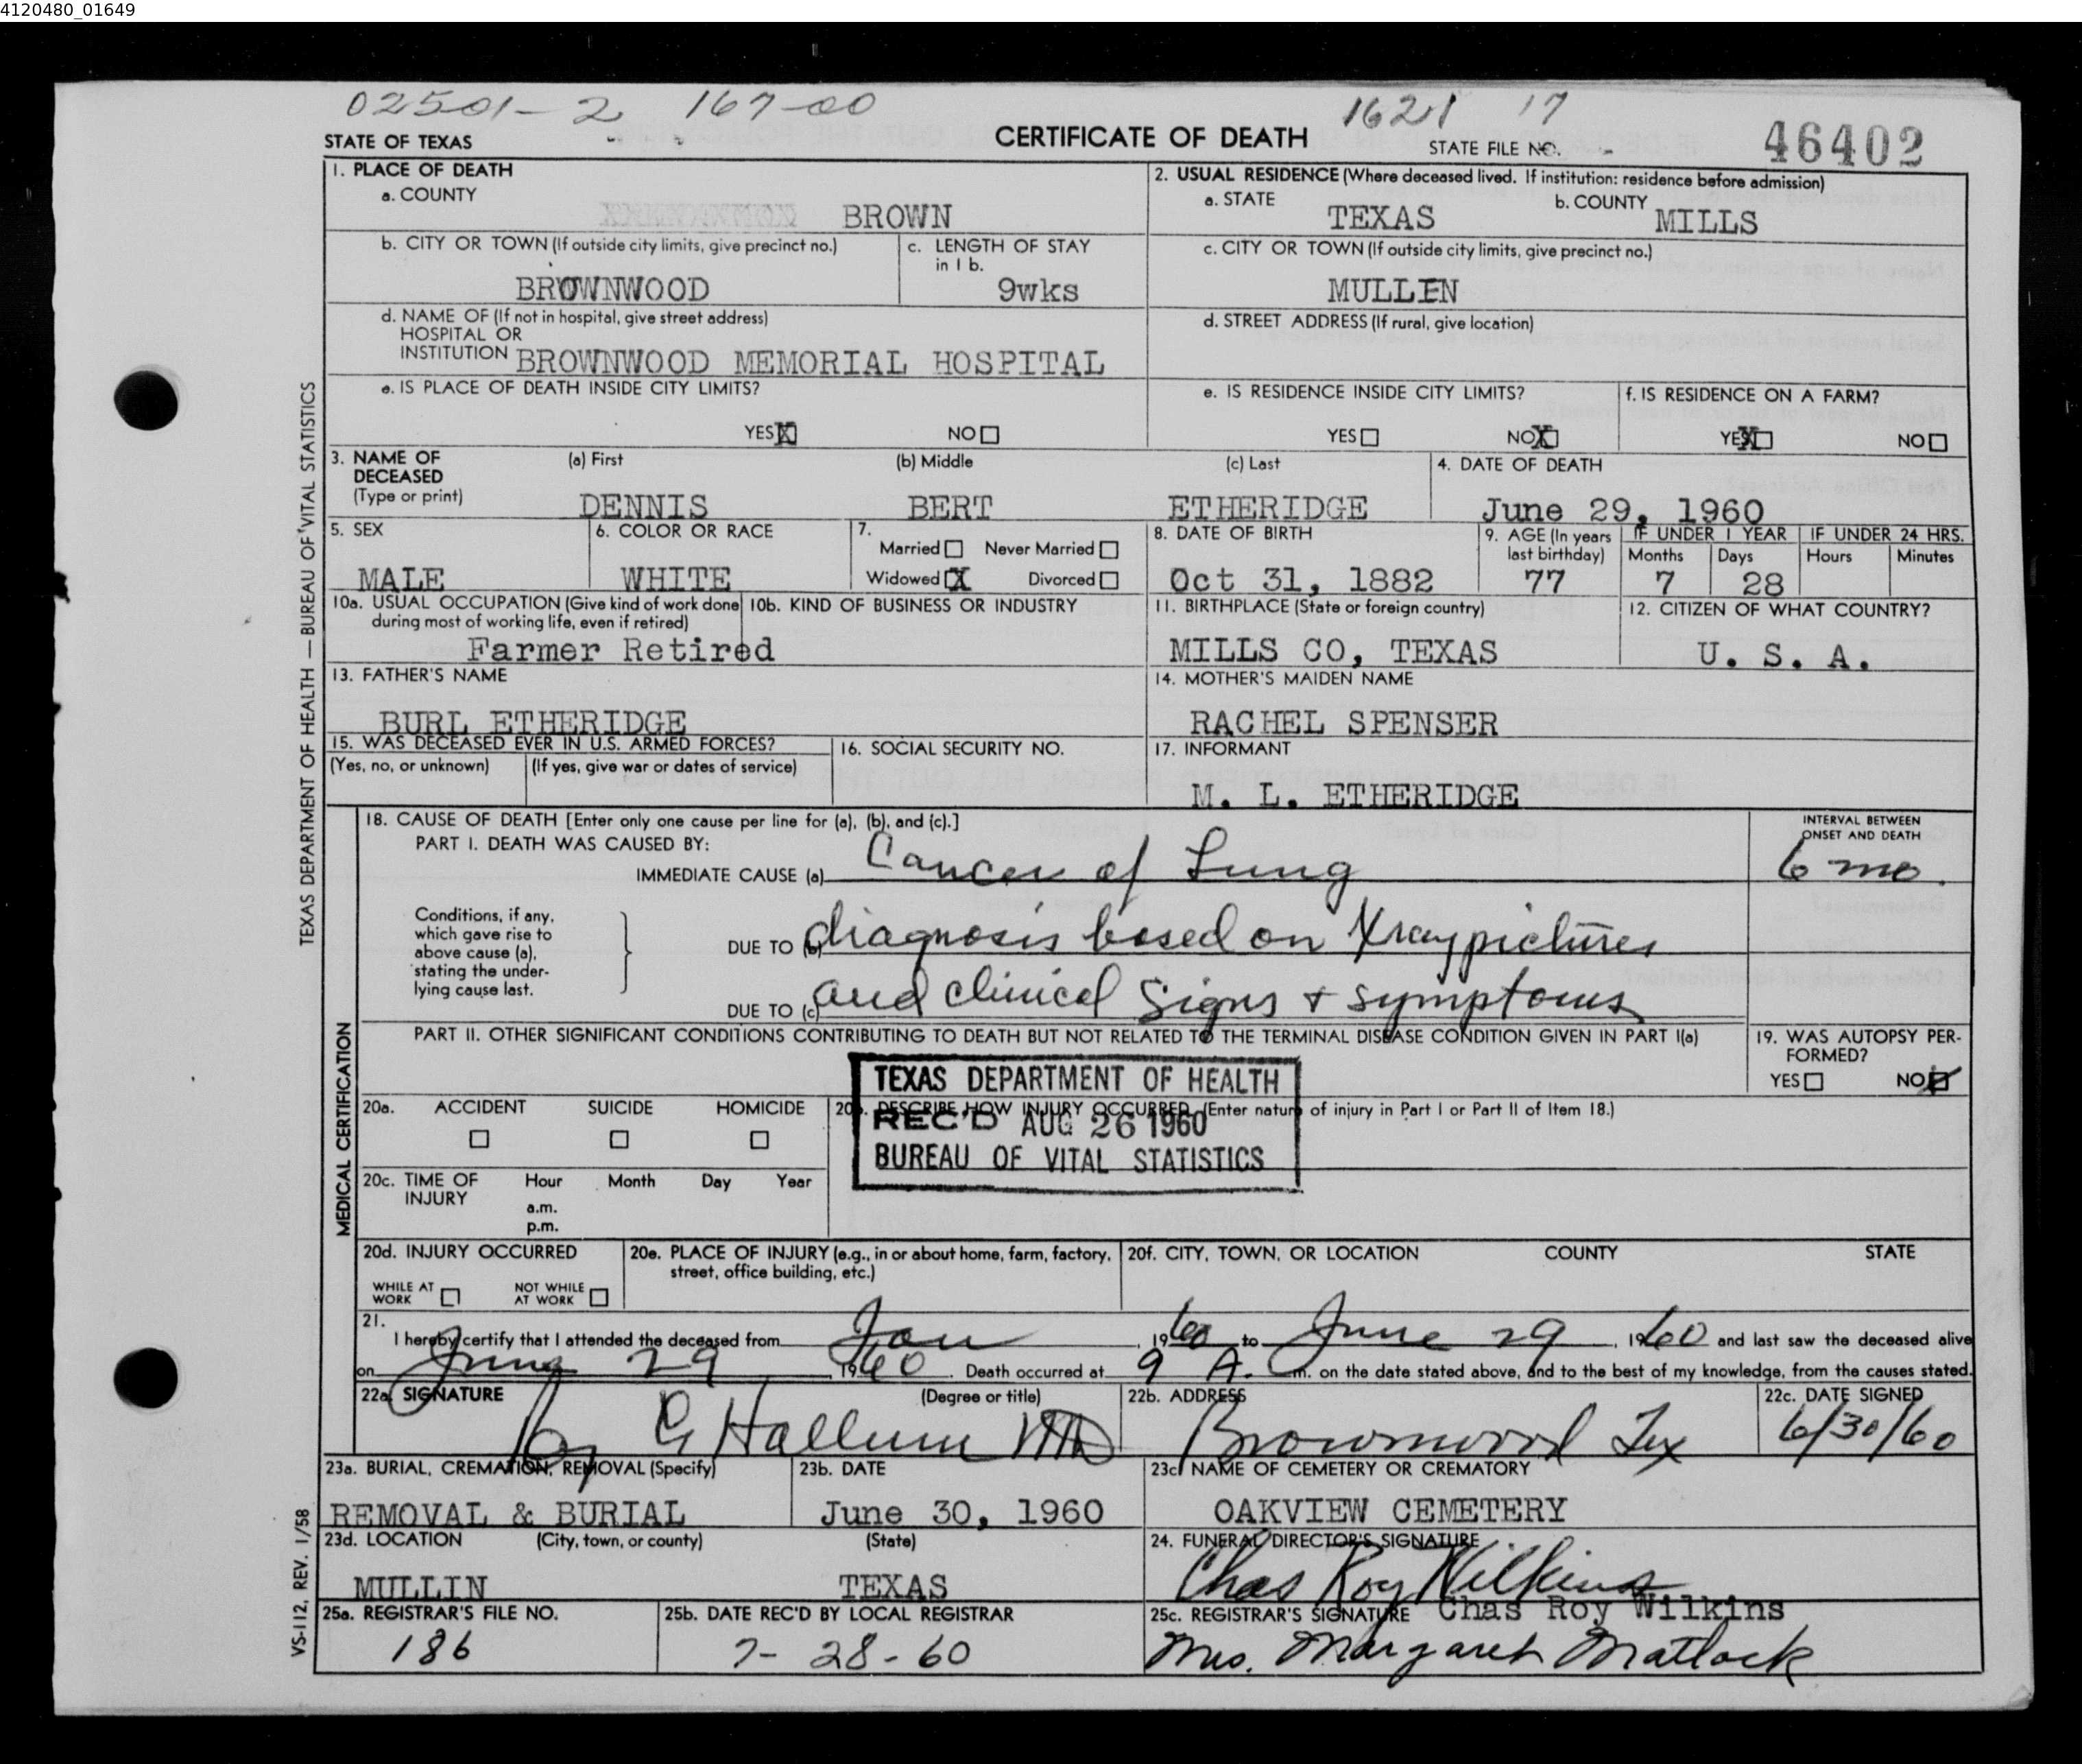 4120480_01649
02501-2 167-00 1621 17
STATE OF TEXAS
CERTIFICATE OF DEATH
STATE FILE NO. 46402
1. PLACE OF DEATH
a. COUNTY
BROWN
2. USUAL RESIDENCE (Where deceased lived. If institution: residence before admission)
a. STATE TEXAS b. COUNTY MILLS
b. CITY OR TOWN (If outside city limits, give precinct no.)
BROWNWOOD
c. LENGTH OF STAY in 1 b.
9wks
c. CITY OR TOWN (If outside city limits, give precinct no.)
MULLEN
d. NAME OF (If not in hospital, give street address)
HOSPITAL OR
INSTITUTION BROWNWOOD MEMORIAL HOSPITAL
d. STREET ADDRESS (If rural, give location)
e. IS PLACE OF DEATH INSIDE CITY LIMITS?
YES X NO
e. IS RESIDENCE INSIDE CITY LIMITS?
YES NO X
f. IS RESIDENCE ON A FARM?
YES X NO
3. NAME OF DECEASED (Type or print)
(a) First (b) Middle (c) Last
DENNIS BERT ETHERIDGE
4. DATE OF DEATH
June 29, 1960
5. SEX
MALE
6. COLOR OR RACE
WHITE
7.
Married Never Married
Widowed X Divorced
8. DATE OF BIRTH
Oct 31, 1882
9. AGE (In years last birthday)
77
IF UNDER 1 YEAR
Months Days
7 28
IF UNDER 24 HRS.
Hours Minutes
10a. USUAL OCCUPATION (Give kind of work done during most of working life, even if retired)
Farmer Retired
10b. KIND OF BUSINESS OR INDUSTRY
11. BIRTHPLACE (State or foreign country)
MILLS CO, TEXAS
12. CITIZEN OF WHAT COUNTRY?
U. S. A.
13. FATHER'S NAME
BURL ETHERIDGE
14. MOTHER'S MAIDEN NAME
RACHEL SPENSER
15. WAS DECEASED EVER IN U.S. ARMED FORCES?
(Yes, no, or unknown) (If yes, give war or dates of service)
16. SOCIAL SECURITY NO.
17. INFORMANT
M. L. ETHERIDGE
18. CAUSE OF DEATH [Enter only one cause per line for (a), (b), and (c).]
PART I. DEATH WAS CAUSED BY:
IMMEDIATE CAUSE (a) Cancer of Lung
INTERVAL BETWEEN ONSET AND DEATH
6 mo.
Conditions, if any, which gave rise to above cause (a), stating the under-lying cause last.
DUE TO (b) diagnosis based on Xray pictures
DUE TO (c) and clinical signs + symptoms
PART II. OTHER SIGNIFICANT CONDITIONS CONTRIBUTING TO DEATH BUT NOT RELATED TO THE TERMINAL DISEASE CONDITION GIVEN IN PART I(a)
19. WAS AUTOPSY PER-FORMED?
YES NO
TEXAS DEPARTMENT OF HEALTH
REC'D AUG 26 1960
BUREAU OF VITAL STATISTICS
20a. ACCIDENT SUICIDE HOMICIDE
20b. DESCRIBE HOW INJURY OCCURRED (Enter nature of injury in Part I or Part II of Item 18.)
20c. TIME OF INJURY Hour Month Day Year
a.m.
p.m.
20d. INJURY OCCURRED
WHILE AT WORK NOT WHILE AT WORK
20e. PLACE OF INJURY (e.g., in or about home, farm, factory, street, office building, etc.)
20f. CITY, TOWN, OR LOCATION COUNTY STATE
21.
I hereby certify that I attended the deceased from Jan, 1960 to June 29, 1960 and last saw the deceased alive
on June 29, 1960. Death occurred at 9 A. m. on the date stated above, and to the best of my knowledge, from the causes stated.
22a. SIGNATURE (Degree or title)
G Hallum MD
22b. ADDRESS
Brownwood Tex
22c. DATE SIGNED
6/30/60
23a. BURIAL, CREMATION, REMOVAL (Specify)
REMOVAL & BURIAL
23b. DATE
June 30, 1960
23c. NAME OF CEMETERY OR CREMATORY
OAKVIEW CEMETERY
23d. LOCATION (City, town, or county) (State)
MULLIN TEXAS
24. FUNERAL DIRECTOR'S SIGNATURE
Chas Roy Wilkins
Chas Roy Wilkins
25a. REGISTRAR'S FILE NO.
186
25b. DATE REC'D BY LOCAL REGISTRAR
7-28-60
25c. REGISTRAR'S SIGNATURE
Mrs. Margaret Matlock
TEXAS DEPARTMENT OF HEALTH — BUREAU OF VITAL STATISTICS
MEDICAL CERTIFICATION
VS-112, REV. 1/58